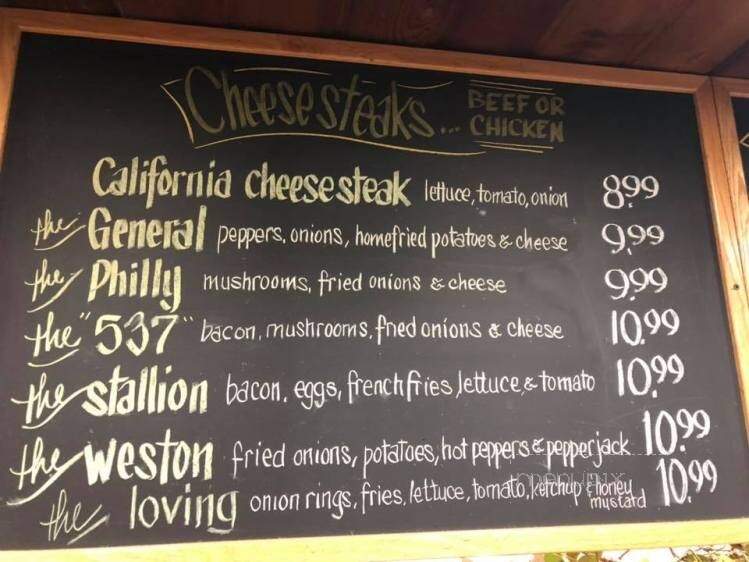 Cheesesteaks... BEEF OR CHICKEN
California cheesesteak lettuce, tomato, onion 8.99
the General peppers, onions, homefried potatoes & cheese 9.99
the Philly mushrooms, fried onions & cheese 9.99
the "537" bacon, mushrooms, fried onions & cheese 10.99
the stallion bacon, eggs, french fries, lettuce, & tomato 10.99
the weston fried onions, potatoes, hot peppers & pepperjack 10.99
the loving onion rings, fries, lettuce, tomato, ketchup & honey mustard 10.99